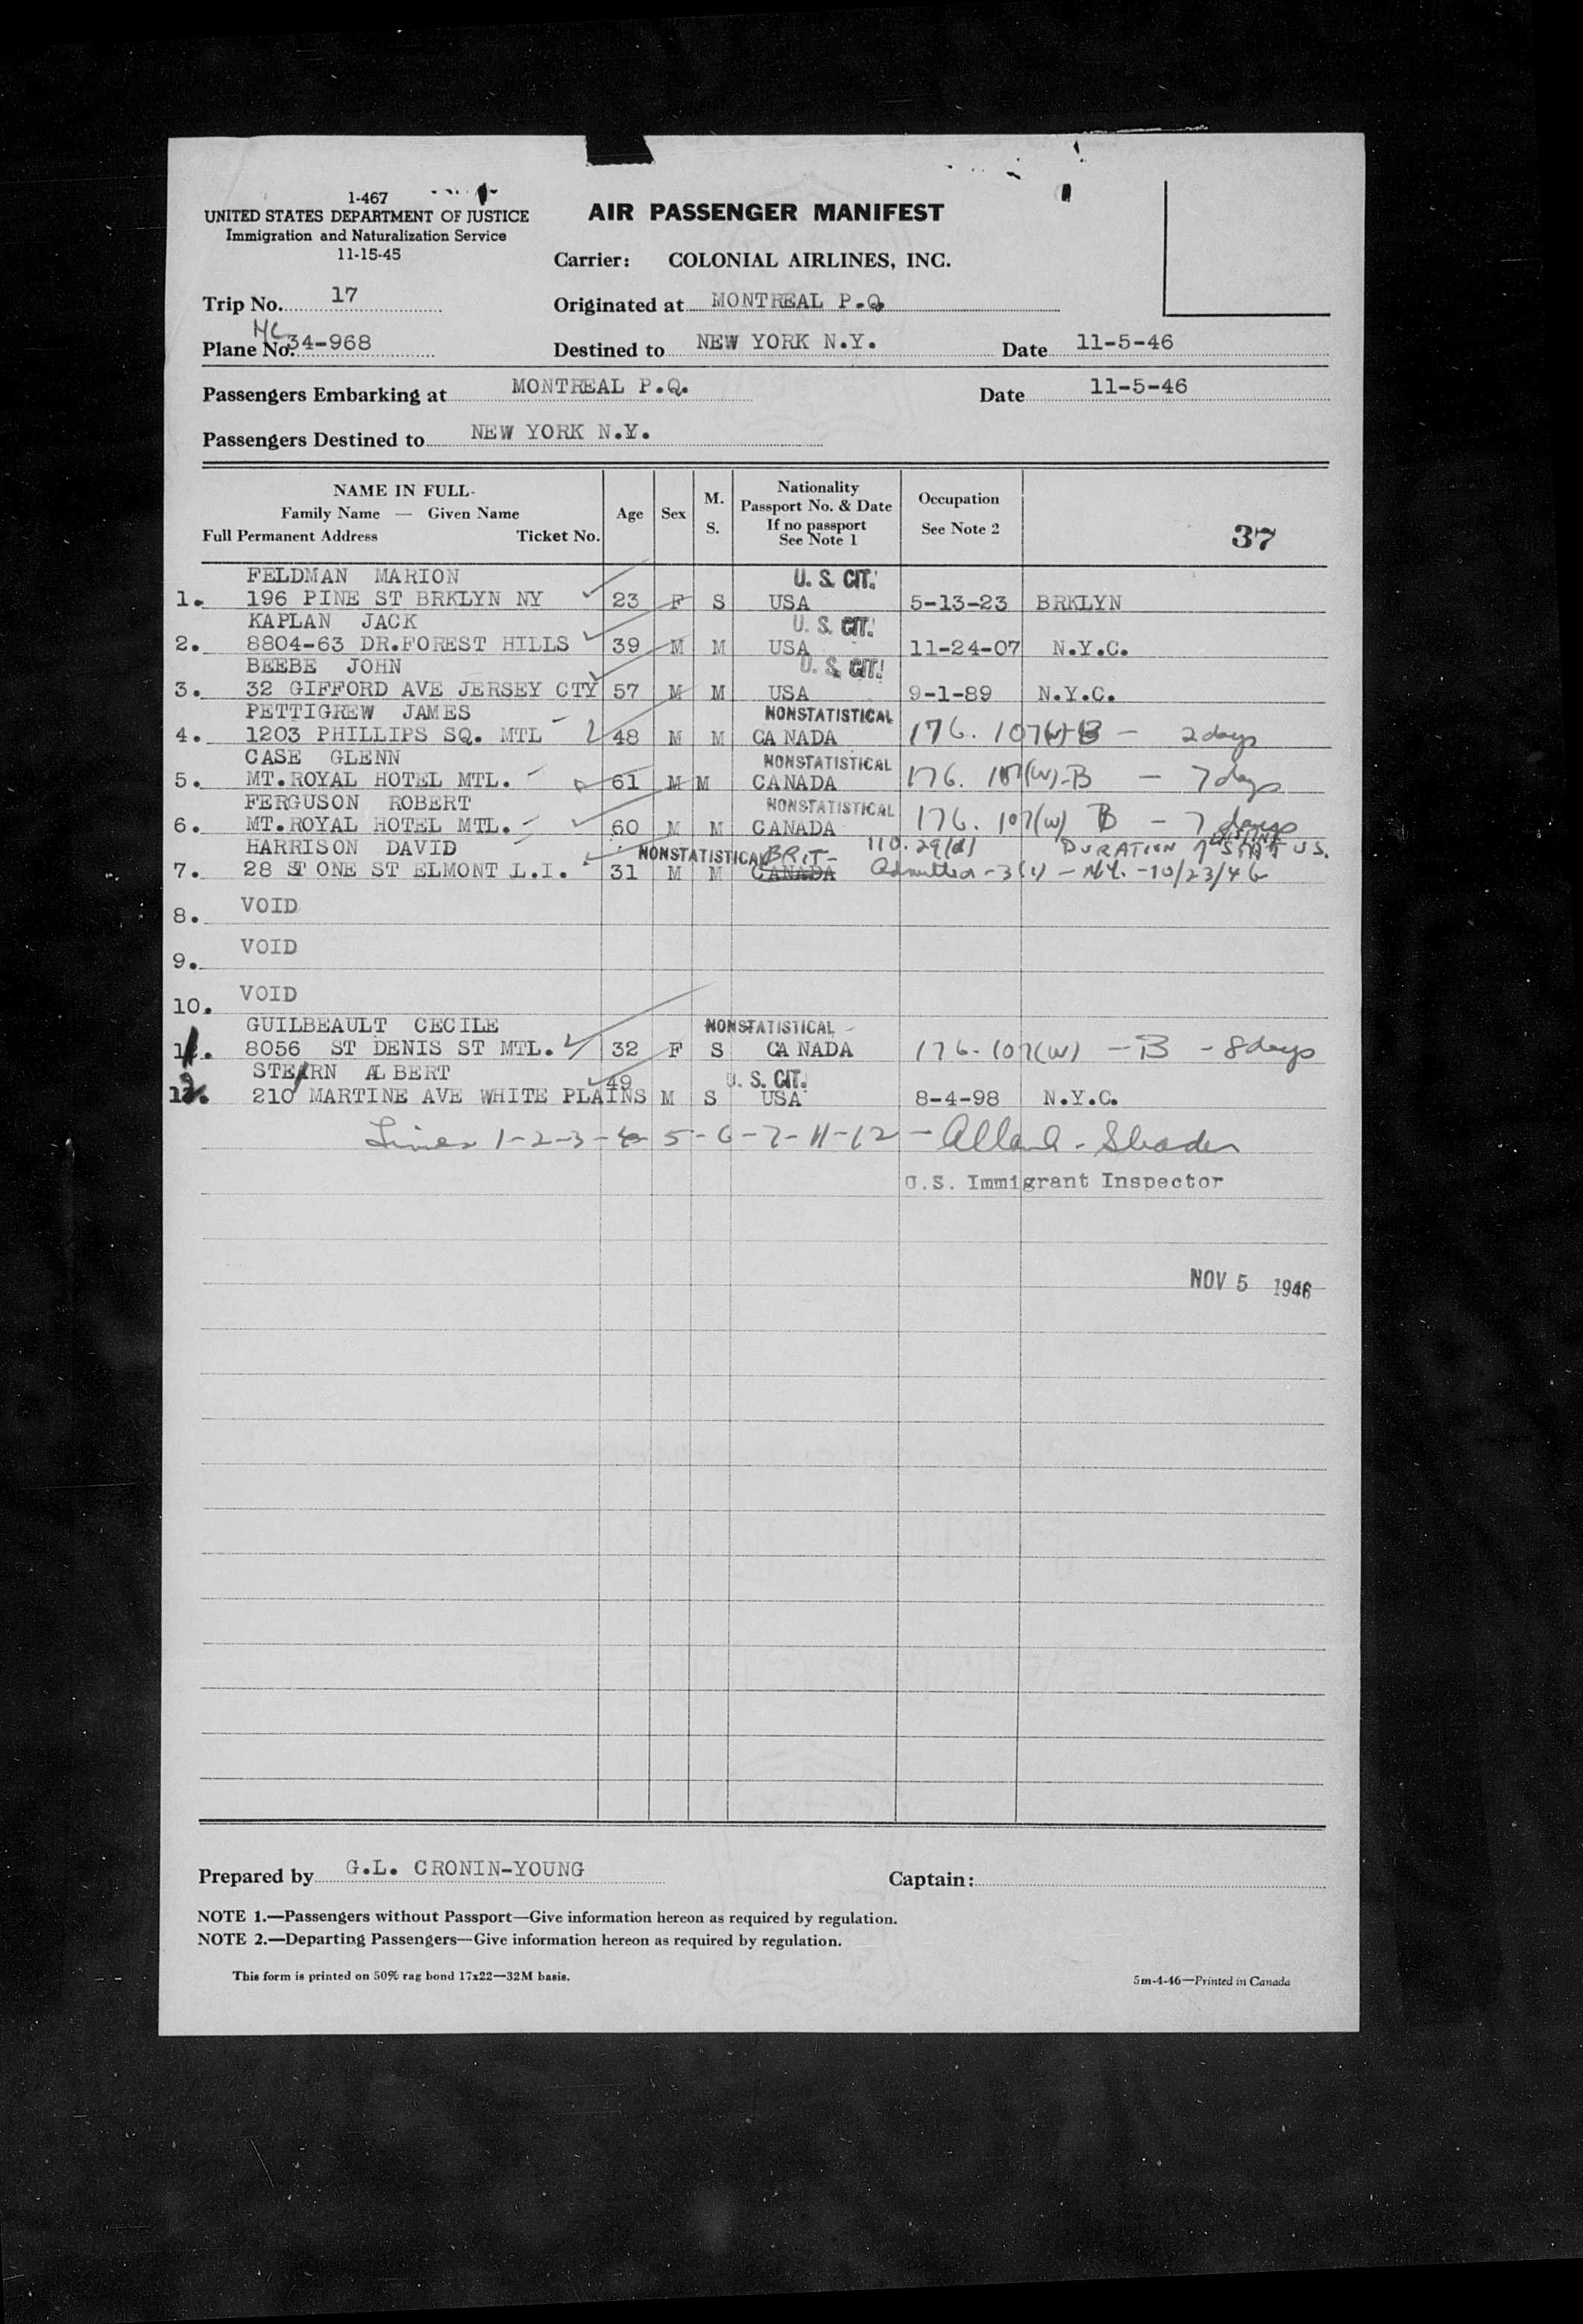 1-467
UNITED STATES DEPARTMENT OF JUSTICE
Immigration and Naturalization Service
11-15-45
AIR PASSENGER MANIFEST
Carrier: COLONIAL AIRLINES, INC.
Trip No. 17
Originated at MONTREAL P.Q.
Plane No. NC 34-968
Destined to NEW YORK N.Y. Date 11-5-46
Passengers Embarking at MONTREAL P.Q. Date 11-5-46
Passengers Destined to NEW YORK N.Y.
NAME IN FULL
Family Name — Given Name
Full Permanent Address Ticket No.
Age
Sex
M.
S.
Nationality
Passport No. & Date
If no passport
See Note 1
Occupation
See Note 2
37
FELDMAN MARION U. S. CIT.
1. 196 PINE ST BRKLYN NY 23 F S USA 5-13-23 BRKLYN
KAPLAN JACK U. S. CIT.
2. 8804-63 DR.FOREST HILLS 39 M M USA 11-24-07 N.Y.C.
BEEBE JOHN U. S. CIT.
3. 32 GIFFORD AVE JERSEY CTY 57 M M USA 9-1-89 N.Y.C.
PETTIGREW JAMES NONSTATISTICAL
4. 1203 PHILLIPS SQ. MTL 48 M M CANADA 176. 107(w)-B — 2 days
CASE GLENN NONSTATISTICAL
5. MT.ROYAL HOTEL MTL. 61 M M CANADA 176. 107(w)-B — 7 days
FERGUSON ROBERT NONSTATISTICAL
6. MT.ROYAL HOTEL MTL. 60 M M CANADA 176. 107(w) B — 7 days
HARRISON DAVID NONSTATISTICAL BRIT- 110.29(d) DURATION STATUS.
7. 28 STONE ST ELMONT L.I. 31 M M CANADA Admitted -3(1) - N.Y. -10/23/46
8. VOID
9. VOID
10. VOID
GUILBEAULT CECILE NONSTATISTICAL
11. 8056 ST DENIS ST MTL. 32 F S CANADA 176.107(w) — B - 8 days
STEARN ALBERT U. S. CIT.
12. 210 MARTINE AVE WHITE PLAINS 49 M S USA 8-4-98 N.Y.C.
Lines 1-2-3-4-5-6-7-11-12 —
U.S. Immigrant Inspector
NOV 5 1946
Prepared by G.L. CRONIN-YOUNG
Captain:
NOTE 1.—Passengers without Passport—Give information hereon as required by regulation.
NOTE 2.—Departing Passengers—Give information hereon as required by regulation.
This form is printed on 50% rag bond 17x22—32M basis.
5m-4-46—Printed in Canada